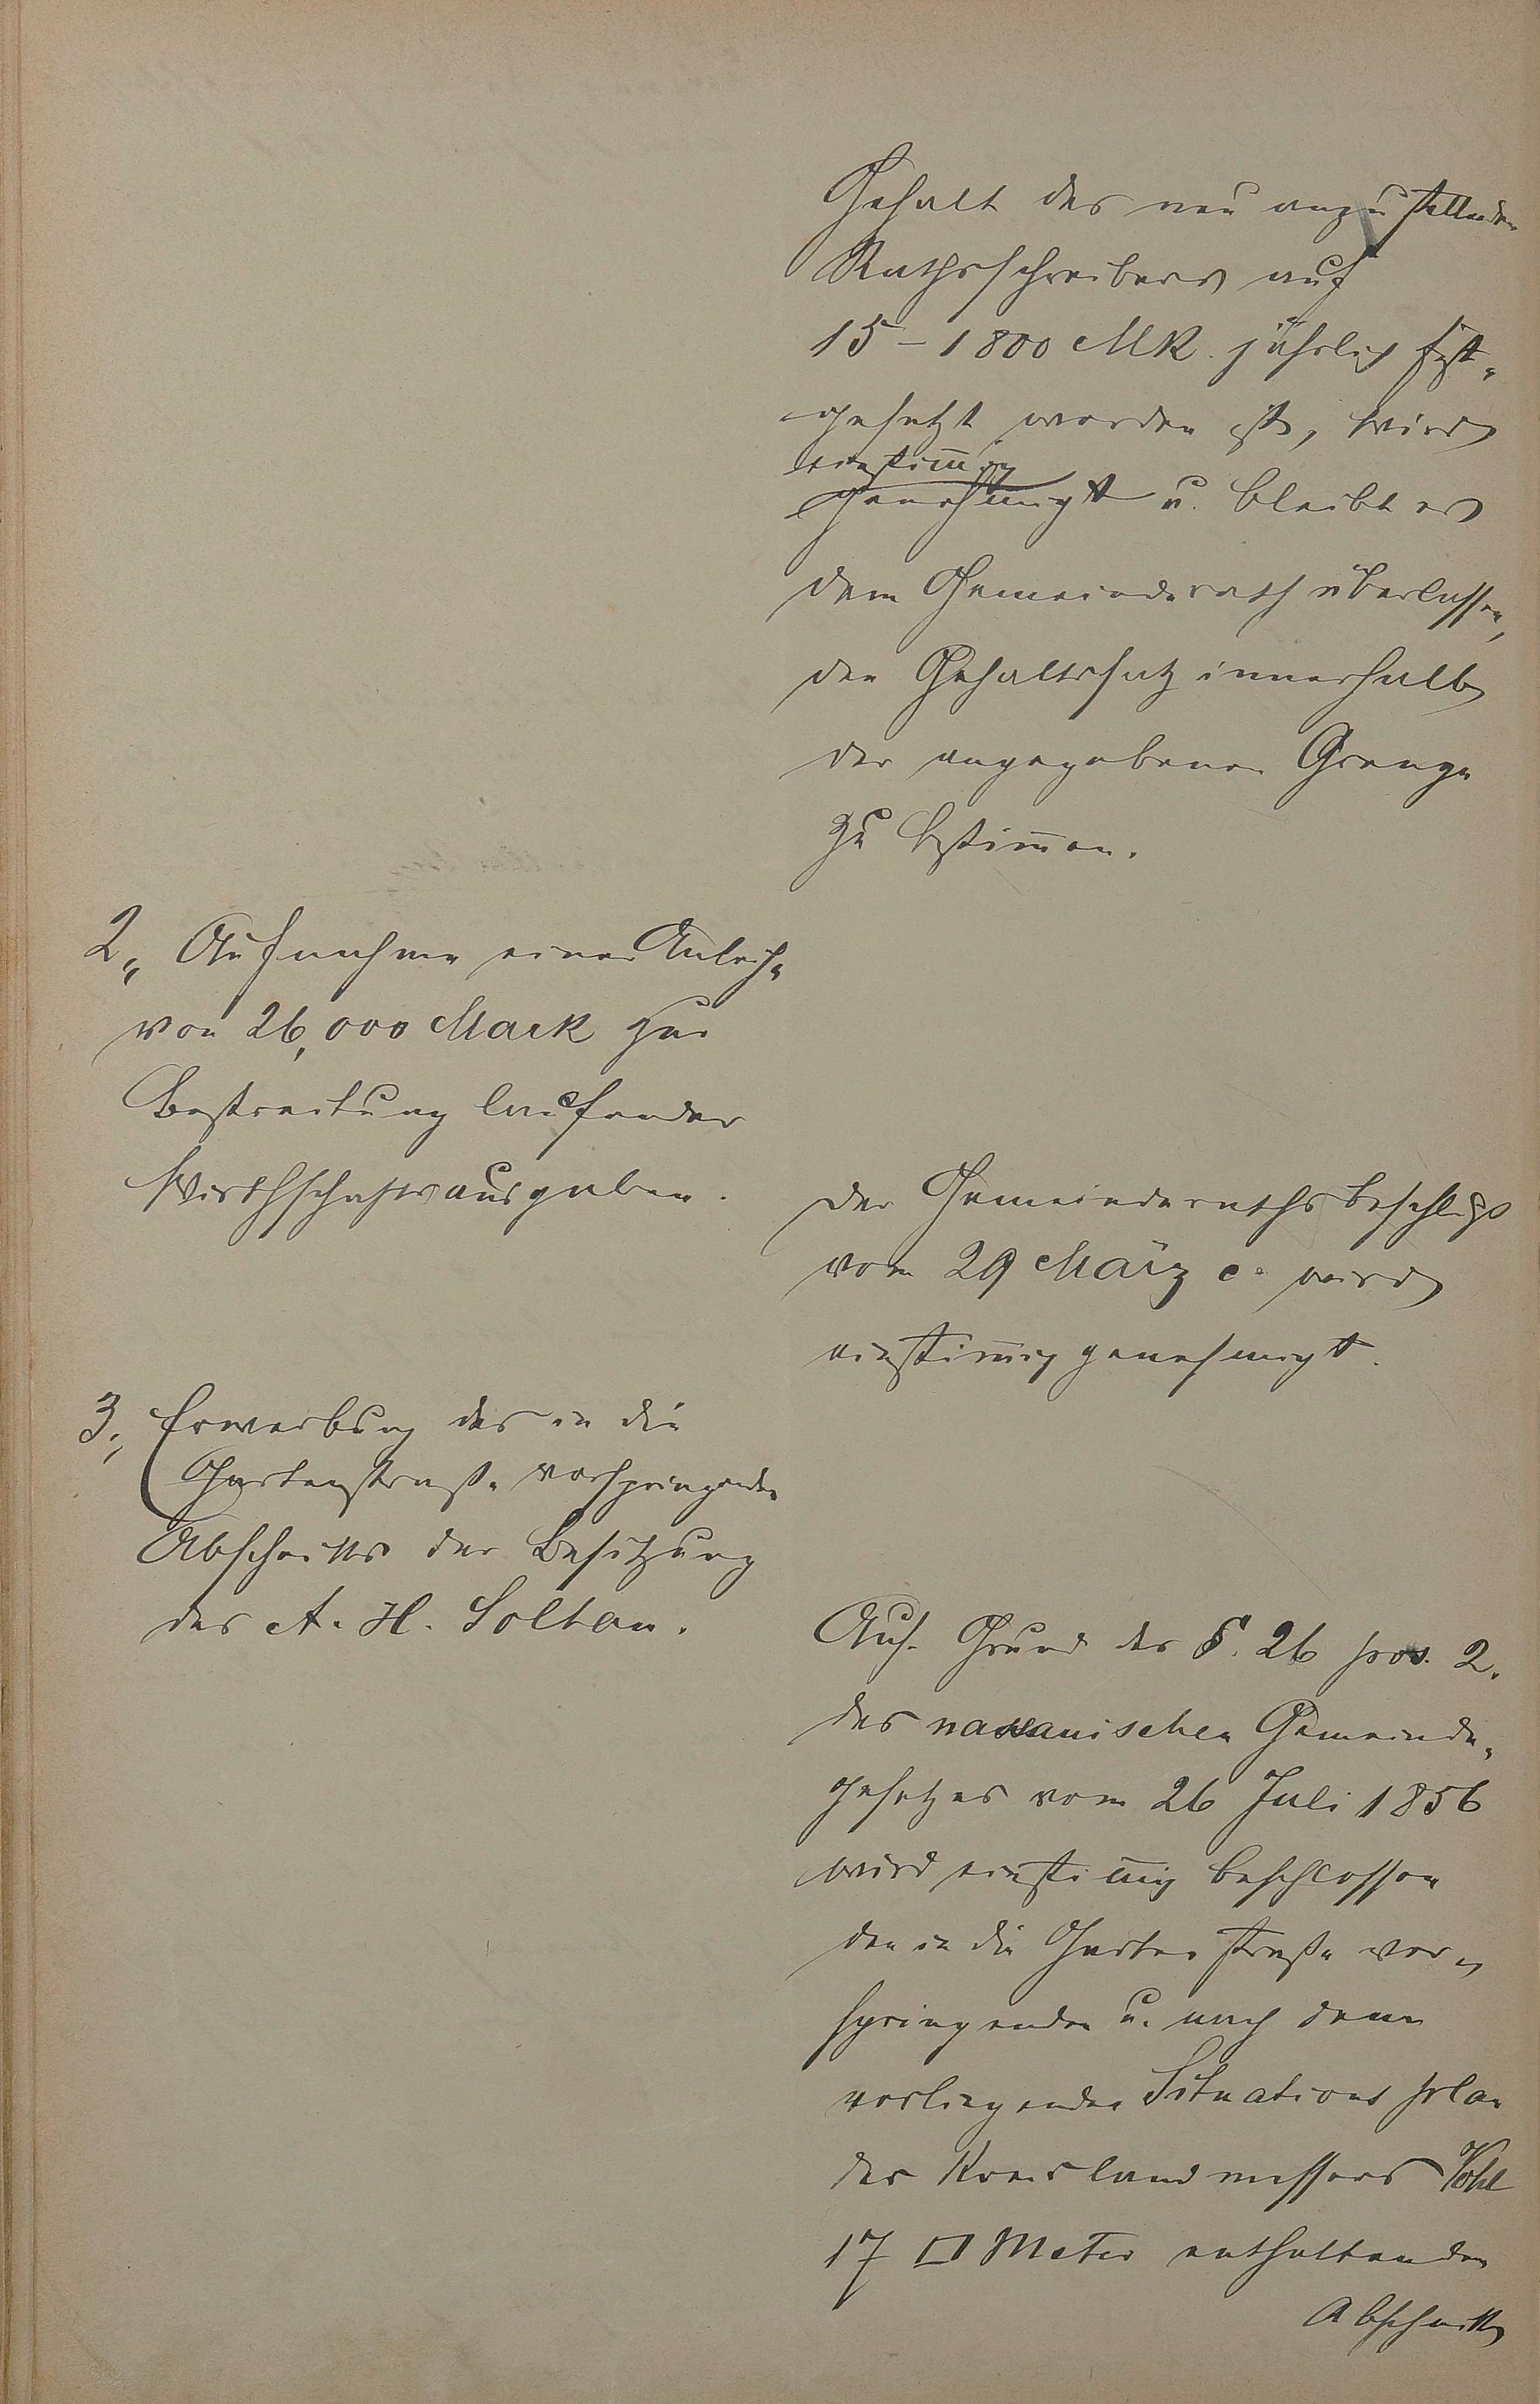 Gehalt des neu anzustellenden
Rathsschreibers auf
15-1800 MK. jährlich fest-
gesetzt worden ist, wird
einstimmig
genehmigt u. bleibt es
dem Gemeinderath überlassen,
den Gehaltssatz innerhalb
der angegebenen Grenze
zu bestimmen.
2, Aufnahme einer Anleihe
von 26,000 Mark zur
Bestreitung laufender
Wirthschaftsausgaben.
Der Gemeinderathsbeschluß
vom 29 März c. wird
einstimmig genehmigt.
3., Erwerbung des in die
Gartenstraße vorspringenden
Abschnitts der Besitzung
des A. H. Soltan.
Auf Grund des §. 26 pos. 2.
des nassauischen Gemeinde-
gesetzes vom 26 Juli 1856
wird einstimmig beschlossen
den in die Gartenstraße vor-
springenden u. nach dem
vorliegenden Situationsplan
des Kreislandmessers Pohl
17 □ Meter enthaltenden
Abschnitt